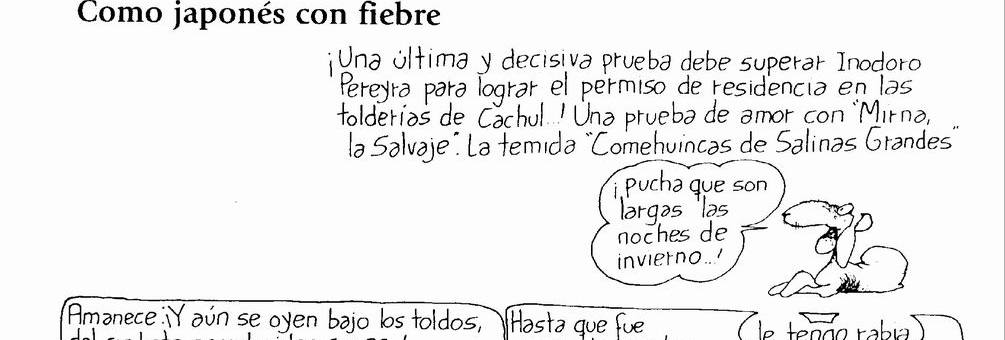 Como japonés con fiebre
¡Una última y decisiva prueba debe superar Inodoro
Pereyra para lograr el permiso de residencia en las
tolderías de Cachul..! Una prueba de amor con "Mirna,
la Salvaje". La temida "Comehuincas de Salinas Grandes"
¡Pucha que son
largas las
noches de
invierno..!
Amanece ¡Y aún se oyen bajo los toldos,
Hasta que fue
le tengo rabia